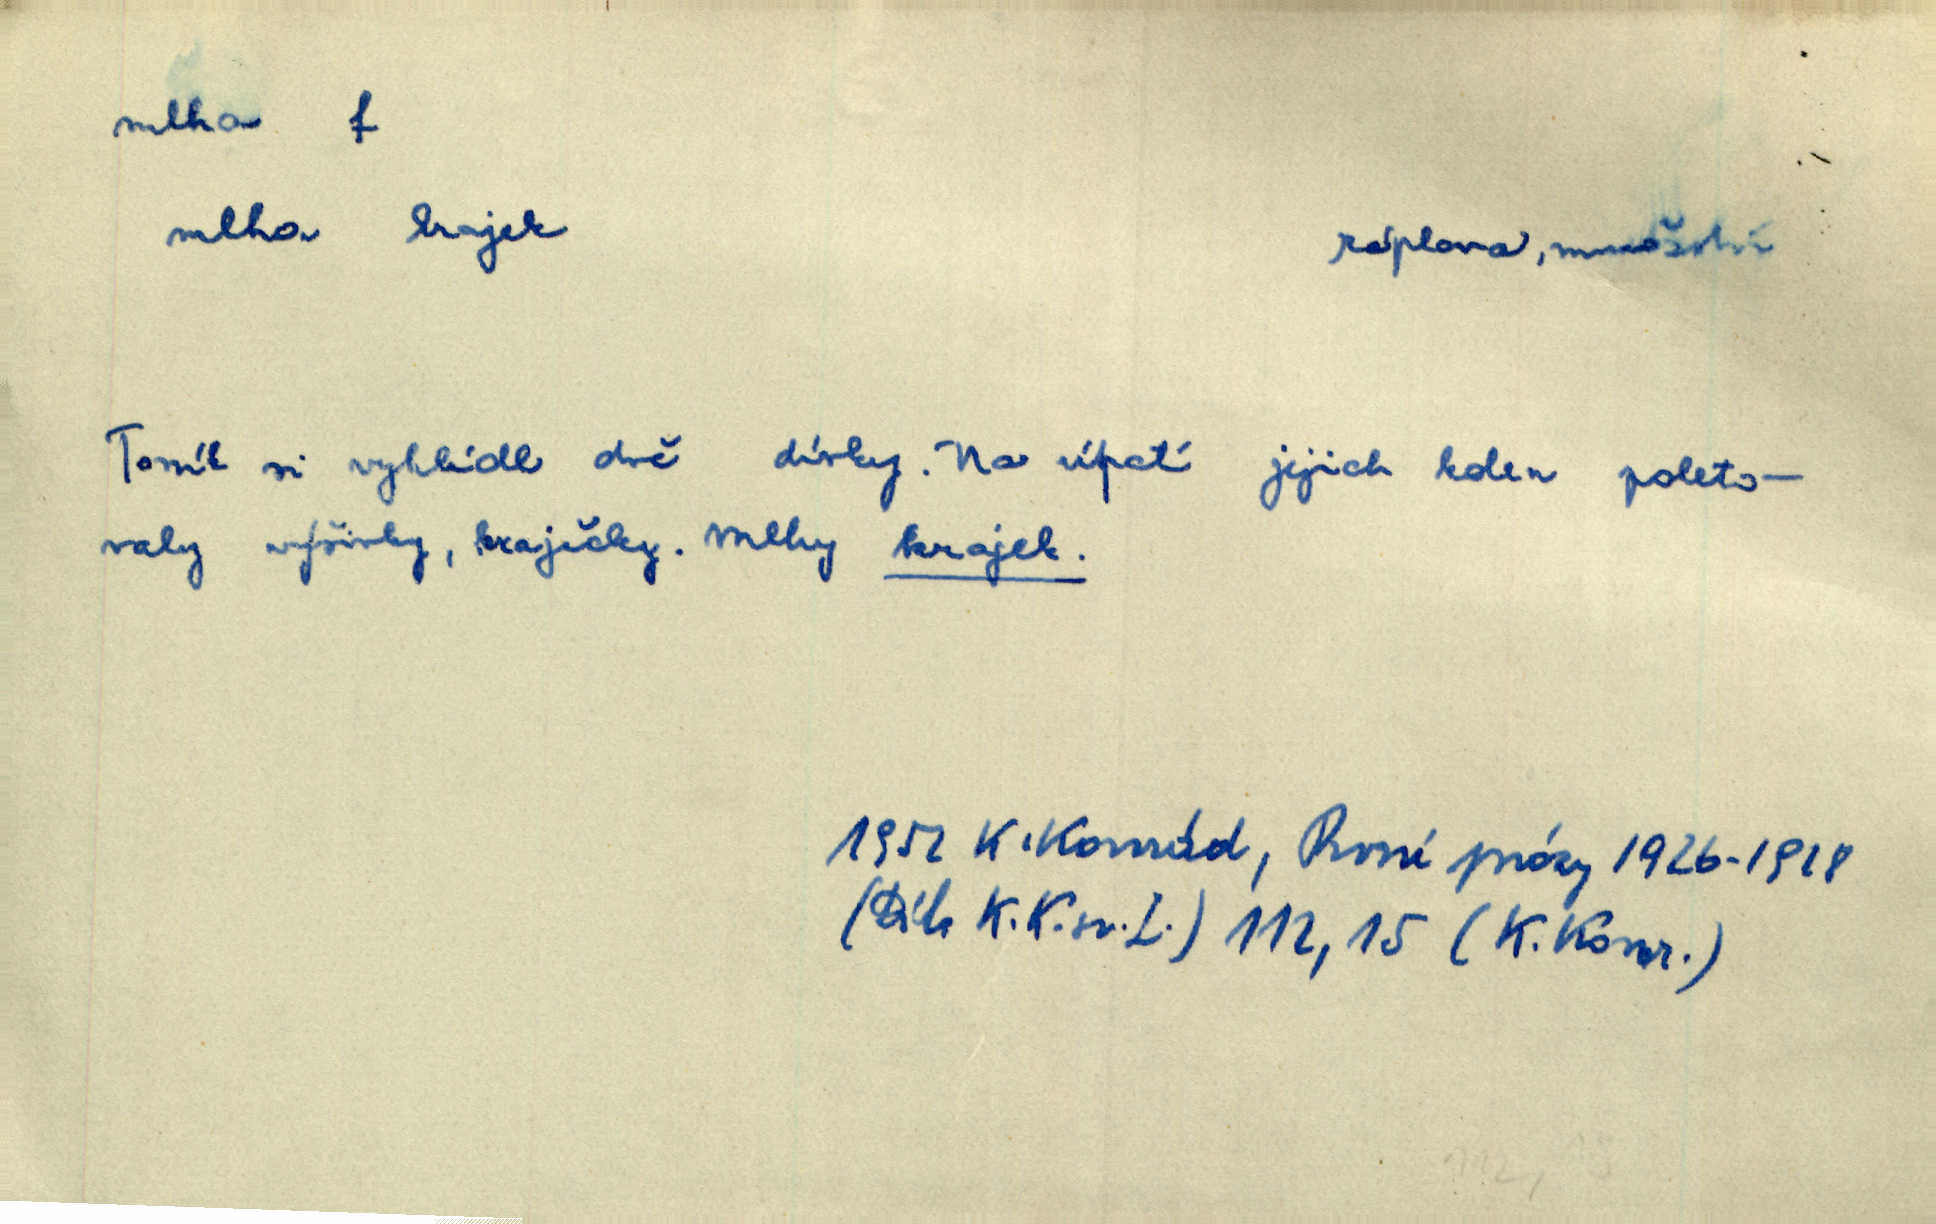 mlha f
mlha krajek
záplava, množství
Tomík si vyhlídl dvě dívky. Na úpatí jejich kolen poleto-
valy výšivky, krajičky. Mlhy krajek.
1952 K. Konrád, První prózy 1926-1928
(Dílo K.K. sv. I.) 112, 15 (K. Konr.)
112, 15